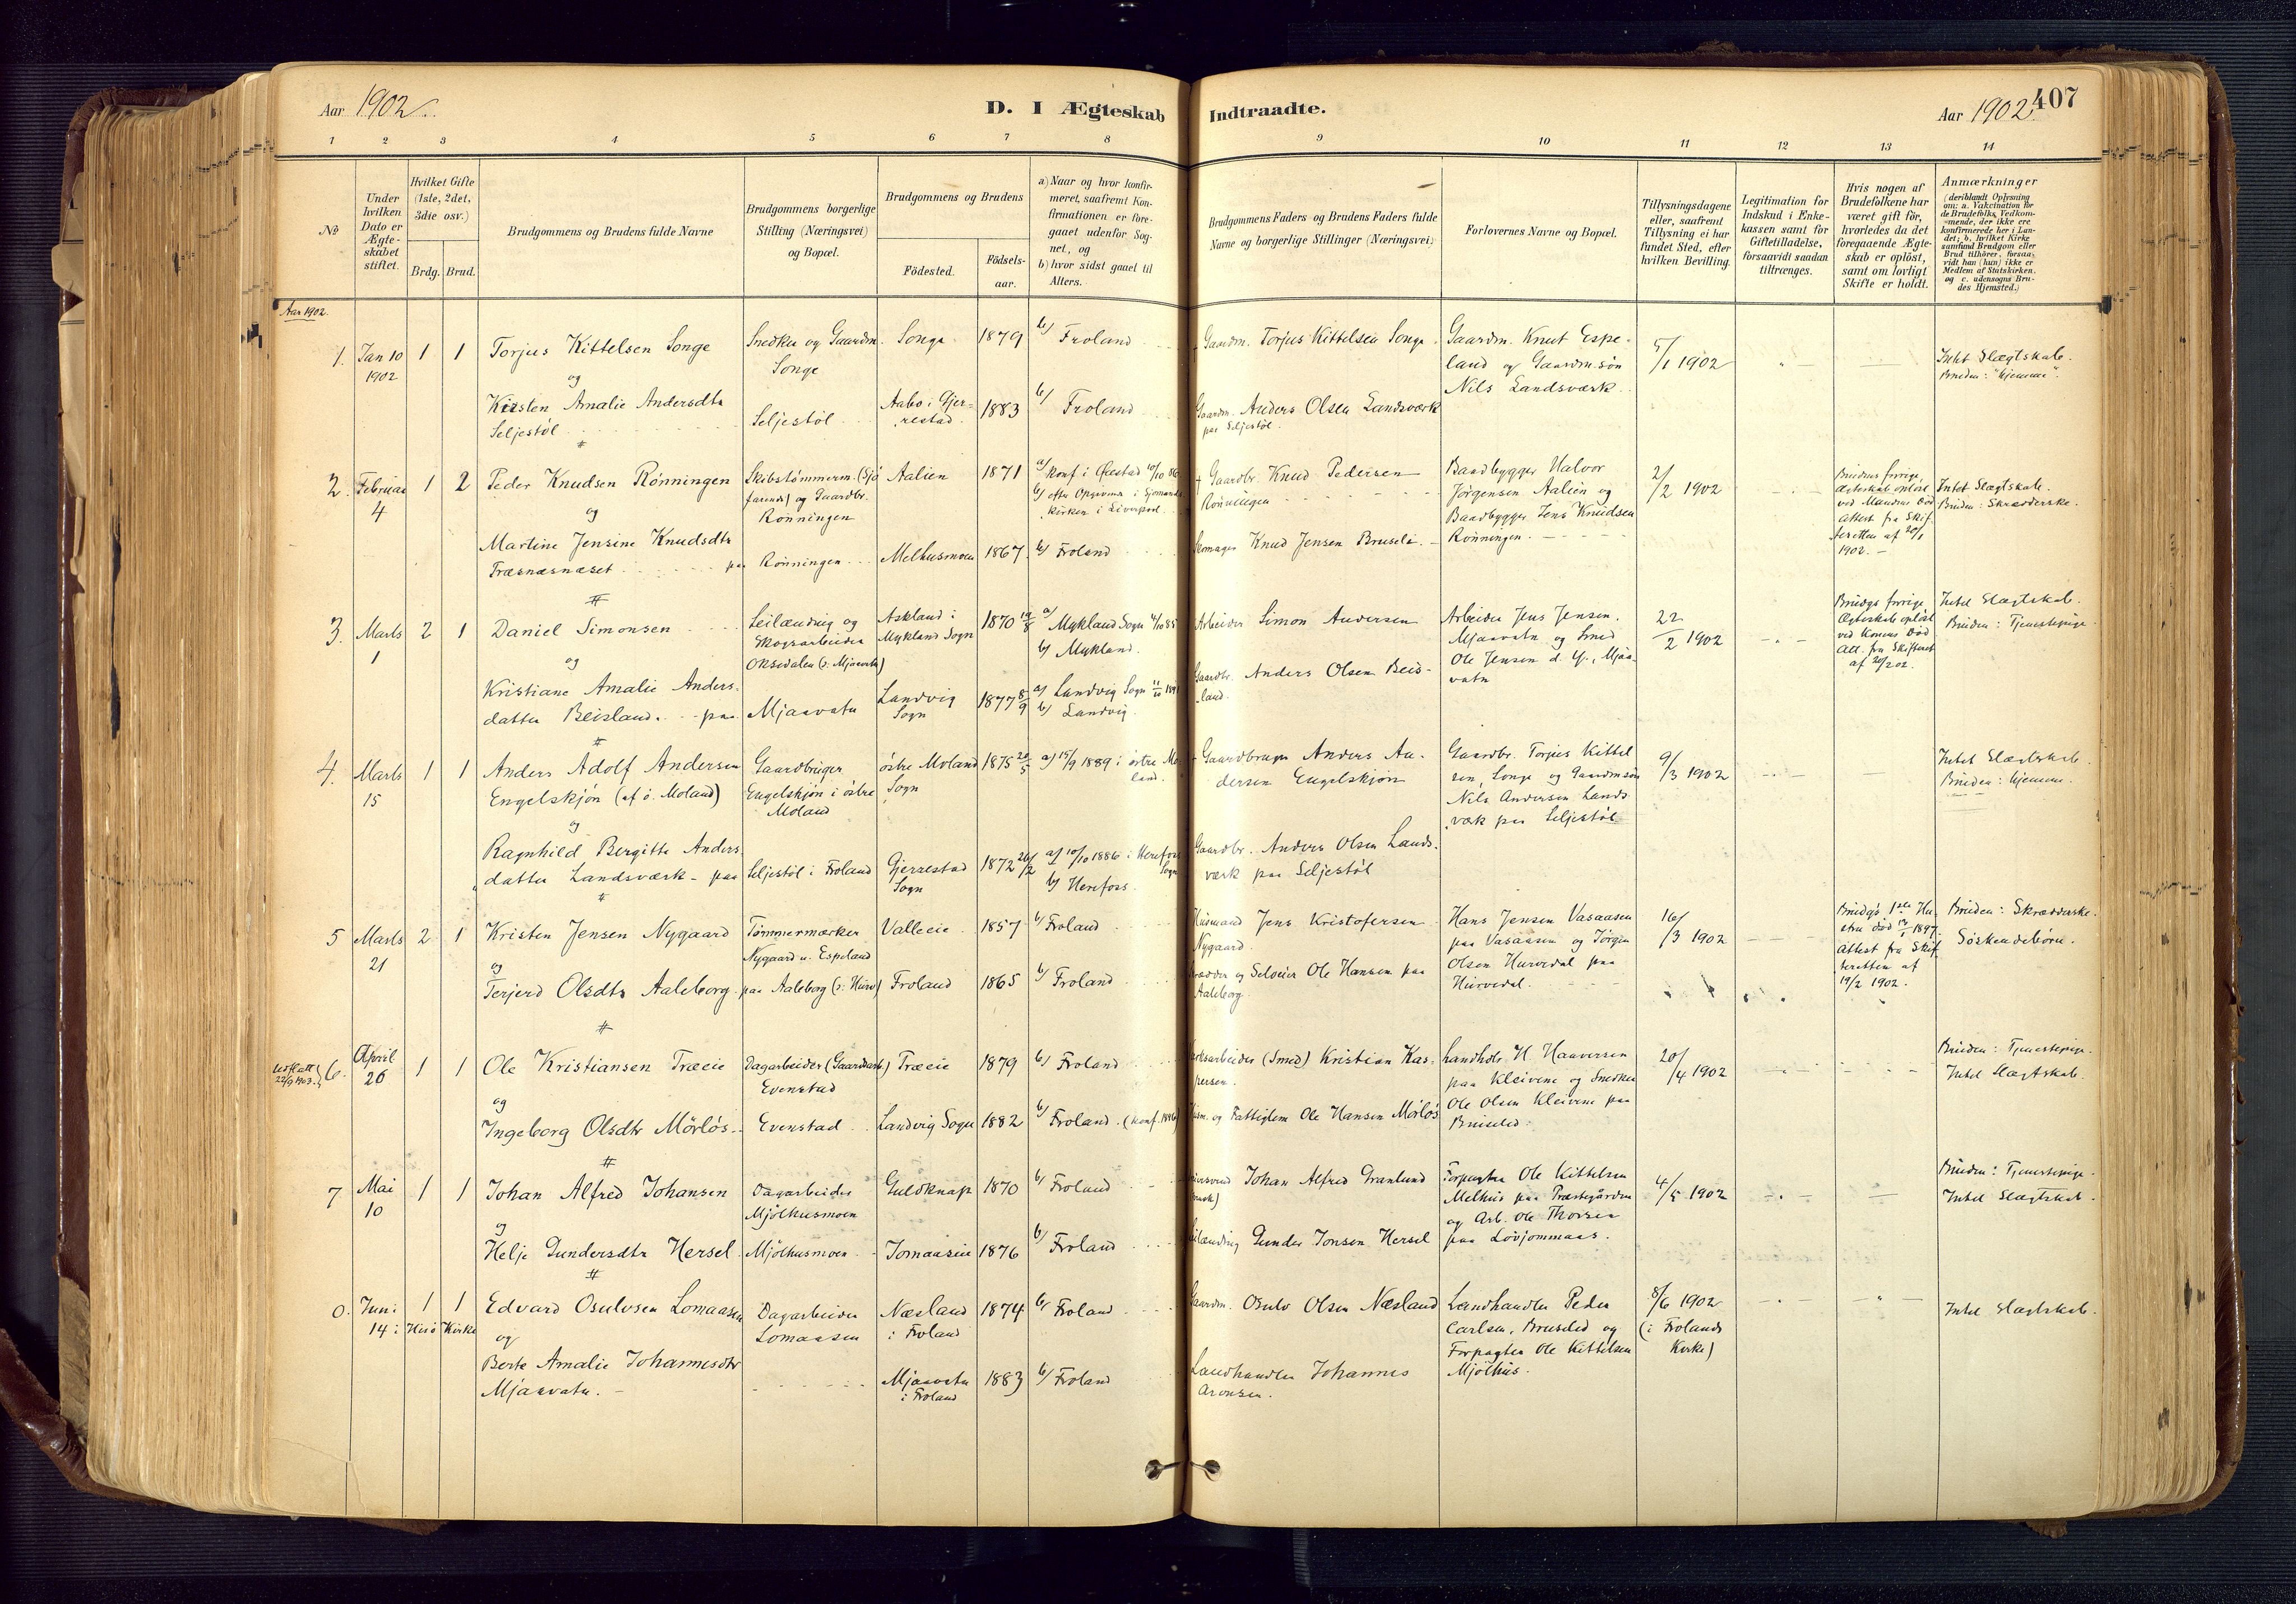 Aar 1902.
D. I Ægteskab Indtraadte.
Aar 1902.
407
1 2 3 4 5 6 7 8 9 10 11 12 13 14
No
Under hvilken Dato er Ægteskabet stiftet.
Hvilket Gifte (1ste, 2det, 3die osv.)
Brdg. Brud.
Brudgommens og Brudens fulde Navne
Brudgommens borgerlige Stilling (Næringsvei) og Bopæl.
Brudgommens og Brudens
Födested.
Födselsaar.
a) Naar og hvor konfirmeret, saafremt Konfirmationen er foregaaet udenfor Sognet, og
b) hvor sidst gaaet til Alters.
Brudgommens Faders og Brudens Faders fulde Navne og borgerlige Stillinger (Næringsvei)
Forlovernes Navne og Bopæl.
Tillysningsdagene eller, saafremt Tillysning ei har fundet Sted, efter hvilken Bevilling.
Legitimation for Indskud i Enkekassen samt for Giftetilladelse, forsaavidt saadan tiltrænges.
Hvis nogen af Brudefolkene har været gift för, hvorledes da det foregaaende Ægteskab er oplöst, samt om lovligt Skifte er holdt.
Anmærkninger
(deriblandt Oplysning om: a. Vakcination for de Brudefolks Vedkommende, der ikke ere konfirmerede her i Landet; b. hvilket Kirkesamfund Brudgom eller Brud tilhörer, forsaavidt han (hun) ikke er Medlem af Statskirken. og c. udensogns Brudes Hjemsted.)
Aar 1902.
1. Jan 10 1902
1 1
Torjus Kittelsen Songe
og
Kirsten Amalie Andersdtr
Seljestöl
Snedker og Gaardm.
Songe
Seljestöl
Songe 1879
b/ Froland
Aabo i Gjerrestad 1883
b/ Froland
Gaardm. Torjus Kittelsen Songe
Gaardm. Anders Olsen Landsværk
paa Seljestöl
Gaardm. Knut Espeland og Gaardm.sön
Nils Landsværk.
5/1 1902
Intet Slægtskab.
Bruden: "hjemme".
2. Februar 4
1 2
Peder Knudsen Rönningen
og
Martine Jensine Knudsdtr
Træsnæsnæset paa
Skibstömmerm. (Sjöfarende) og Gaardbr.
Rönningen
Rönningen
Aalien 1871
a/ Konf. i Öiestad 10/10 86
b/ efter Opgivende i Sjömandskirken i Liverpool
Melhusmoen 1867
b/ Froland
+ Gaardbr. Knud Pedersen
Rönningen
Skomager Knud Jensen Bruseli
Baadbygger Halvor
Jörgensen Aalien og
Baadbygger Jens Knudsen
Rönningen.
2/2 1902
Brudens forrige
Ægteskab oplöst
ved Mandens Död
Attest fra Skifteretten af 20/1
1902.
Intet Slægtskab.
Bruden: Skrædderske.
3. Marts 1
2 1
Daniel Simonsen
og
Kristiane Amalie Andersdatter Beisland. paa
Leilænding og
Skogsarbeider
Oksedalen (o: Mjaavatn)
Mjaavatn
Askland i
Mykland Sogn
1870 19/8
a/ Mykland Sogn 4/10 85
b/ Mykland.
Landvig
Sogn
1877 8/9
a/ Landvig Sogn
b/ Landvig.
Arbeider Simon Andersen
Gaardbr. Anders Olsen Beisland.
Arbeider Jens Jensen.
Mjaavatn og Smed
Ole Jensen d. y., Mjaavatn
22/2 1902
Brudgs forrige
Ægteskab oplöst
ved Konens Död
Att. fra Skifteret
af 20/2 02.
Intet Slægtskab.
Bruden: Tjenestepige.
4. Marts 15
1 1
Anders Adolf Andersen
Engelskjön (af ö. Moland)
og
Ragnhild Bergitte Andersdatter Landsværk - paa
Gaardbruger
Engelskjön i östre
Moland
Seljestöl i Froland
östre Moland
Sogn
1875 20/5
a/ 15/9 1889 i östre Moland.
Gjerrestad
Sogn
1872 26/2
a/ 10/10 1886 i Herefoss Sogn
b/ Herefoss.
+ Gaardbruger Anders Andersen Engelskjön
Gaardbr. Anders Olsen Landsværk paa Seljestöl
Gaardbr. Torjus Kittelsen, Songe og Gaardmsön
Nils Andersen Landsværk paa Seljestöl
9/3 1902
Intet Slægtskab.
Bruden: hjemme.
5 Marts 21
2 1
Kristen Jensen Nygaard
og
Terjerd Olsdtr Aaleborg.
Tömmermærker
Nygaard u. Espeland
paa Aaleborg (o: Hurv)
Valleeie 1857
b/ Froland
Froland 1865
b/ Froland
Husmand Jens Kristofersen
Nygaard.
Skrædder og Selveier Ole Hansen paa
Aaleborg.
Hans Jensen Vasaasen
paa Vasaasen og Jörgen
Olsen Hurvedal paa
Hurvedal.
16/3 1902
Brudgs 1ste Hustru död 1897.
Attest fra Skifteretten af
19/2 1902.
Bruden: Skrædderske.
Söskendebörn.
Udflatt 22/9 1903.
6. April 26
1 1
Ole Kristiansen Træeie
og
Ingeborg Olsdtr Mörlös
Dagarbeider (Gaardsarb.)
Evenstad
Evenstad
Træeie 1879
b/ Froland
Landvig Sogn 1882
b/ Froland. (konf. 1896)
Verksarbeider (Smed) Kristian Kaspersen.
Husm. og Fattiglem Ole Hansen Mörlös
Landhdlr. H. Haaversen
paa Kleivene og Snedker
Ole Olsen Kleivene paa
Bruseled.
20/4 1902
Bruden: Tjenestepige.
Intet Slægtskab.
7 Mai 10
1 1
Johan Alfred Johansen
og
Helje Gundersdtr Hersel
Dagarbeider
Mjölhusmoen
Mjölhusmoen
Guldknap 1870
b/ Froland
Jomaaseie 1876
b/ Froland
Johan Alfred Granlund
Leilænding Gunder Jonsen Hersel
Forpagter Ole Kittelsen
Melhus paa Præstegården
og Arb. Ole Thorsen
paa Lövjommaas.
4/5 1902
Bruden: Tjenestepige.
Intet Slægtskab.
Juni 14 i Hisö Kirke
1 1
Edvard Osulvsen Lomaasen
og
Berte Amalie Johannesdtr
Mjaavatn.
Dagarbeider
Lomaasen
Næsland
i Froland
1874
b/ Froland
Mjaavatn
i Froland
1883
b/ Froland
Gaardm. Osulv Olsen Næsland
Landhandler Johannes
Aronsen.
Landhandler Peder
Carlsen, Bruseled og
Forpagter Ole Kittelsen
Mjölhus.
8/6 1902
(i Frolands
Kirke)
Intet Slægtskab.